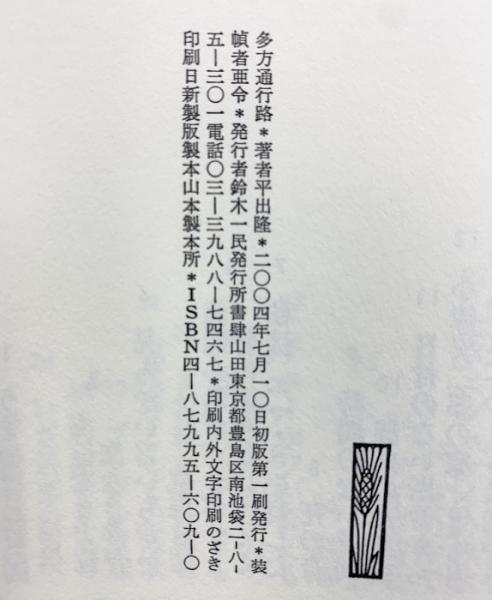 多方通行路*著者平出隆*二〇〇四年七月一〇日初版第一刷発行*装
幀者亜令*発行者鈴木一民発行所書肆山田東京都豊島区南池袋二-八-
五-三〇一電話〇三-三九八八-七四六七*印刷内外文字印刷のざき
印刷日新製版製本山本製本所*ISBN四-八七九九五-六〇九-〇